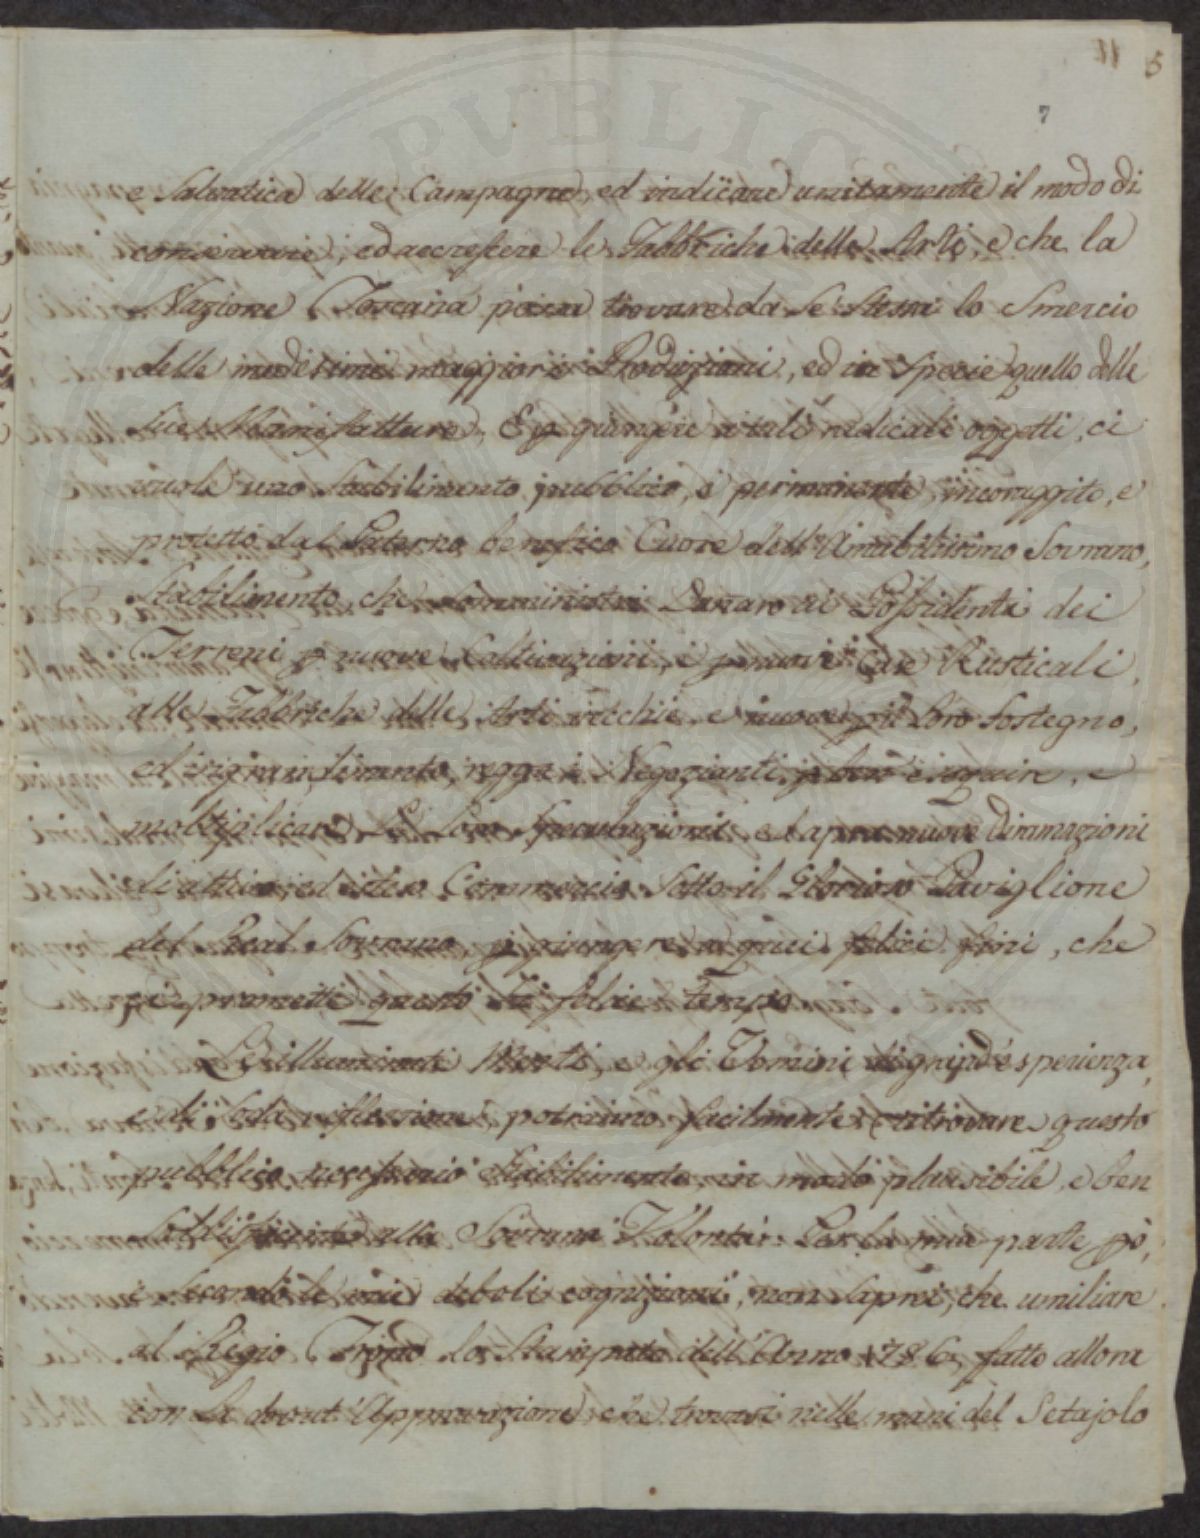 11 5
7
e Salvatica delle Campagne, ed indicare unitamente il modo di
conservare, ed accrescere le Fabbriche delle Arti, e che la
Nazione Toscana possa trovare da Se Stessa lo Smercio
delle medesime maggiori Produzioni, ed in Specie quello delle
sue Manifatture. E p giungere a tali radicali oggetti, ci
vuole uno Stabilimento pubblico, e permanente, incoraggito, e
protetto dal Paterno benefico Cuore dell'Amabilissimo Sovrano,
Stabilimento, che somministri Danaro ai Possidenti dei
Terreni p nuove Coltivazioni, e p nuove Case Rusticali,
alle Fabbriche delle Arti vecchie, e nuove p il Loro Sostegno,
ed ingrandimento, regga i Negozianti, p ben eseguire, e
moltiplicare Le Loro Speculazioni, ed apra nuove Diramazioni
di attivo, ed esteso Commercio Sotto il Glorioso Paviglione
del Real Sovrano, p giungere a quei felici fini, che
ci promette questo Sì felice tempo.
Le illuminate Menti, e gli Uomini di grand'esperienza,
e di Soda riflessione, potranno facilmente ritrovare questo
pubblico necessario Stabilimento, in modo plausibile, e ben
Soddisfacente alla Sovrana Volontà. Per la mia parte pò,
e Secondo le mie deboli cognizioni, non Saprei, che umiliare
al Regio Trono Lo Stampato dell'Anno 1786, fatto allora
con La dovut' Approvazione, che trovasi nelle mani del Setajolo
PVBLIC